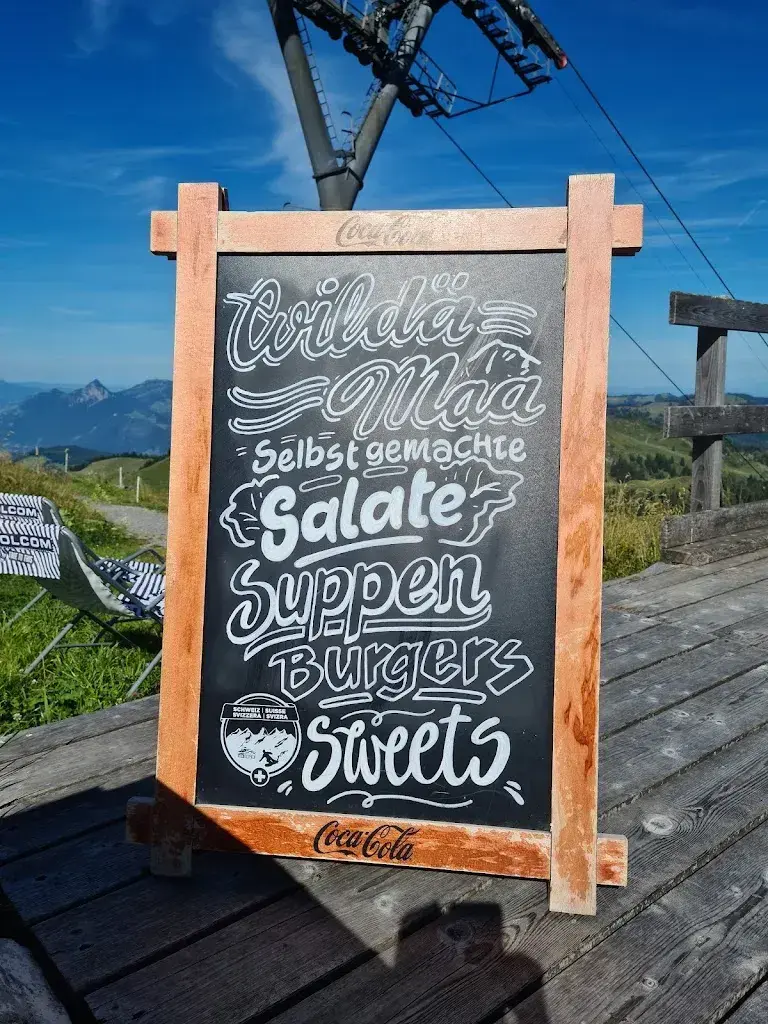 Coca-Cola
Wildä
Maa
Selbstgemachte
Salate
Suppen
Burgers
Sweets
SCHWEIZ | SUISSE
SVIZZERA | SVIZRA
Coca-Cola
OLCOM
OLCOM